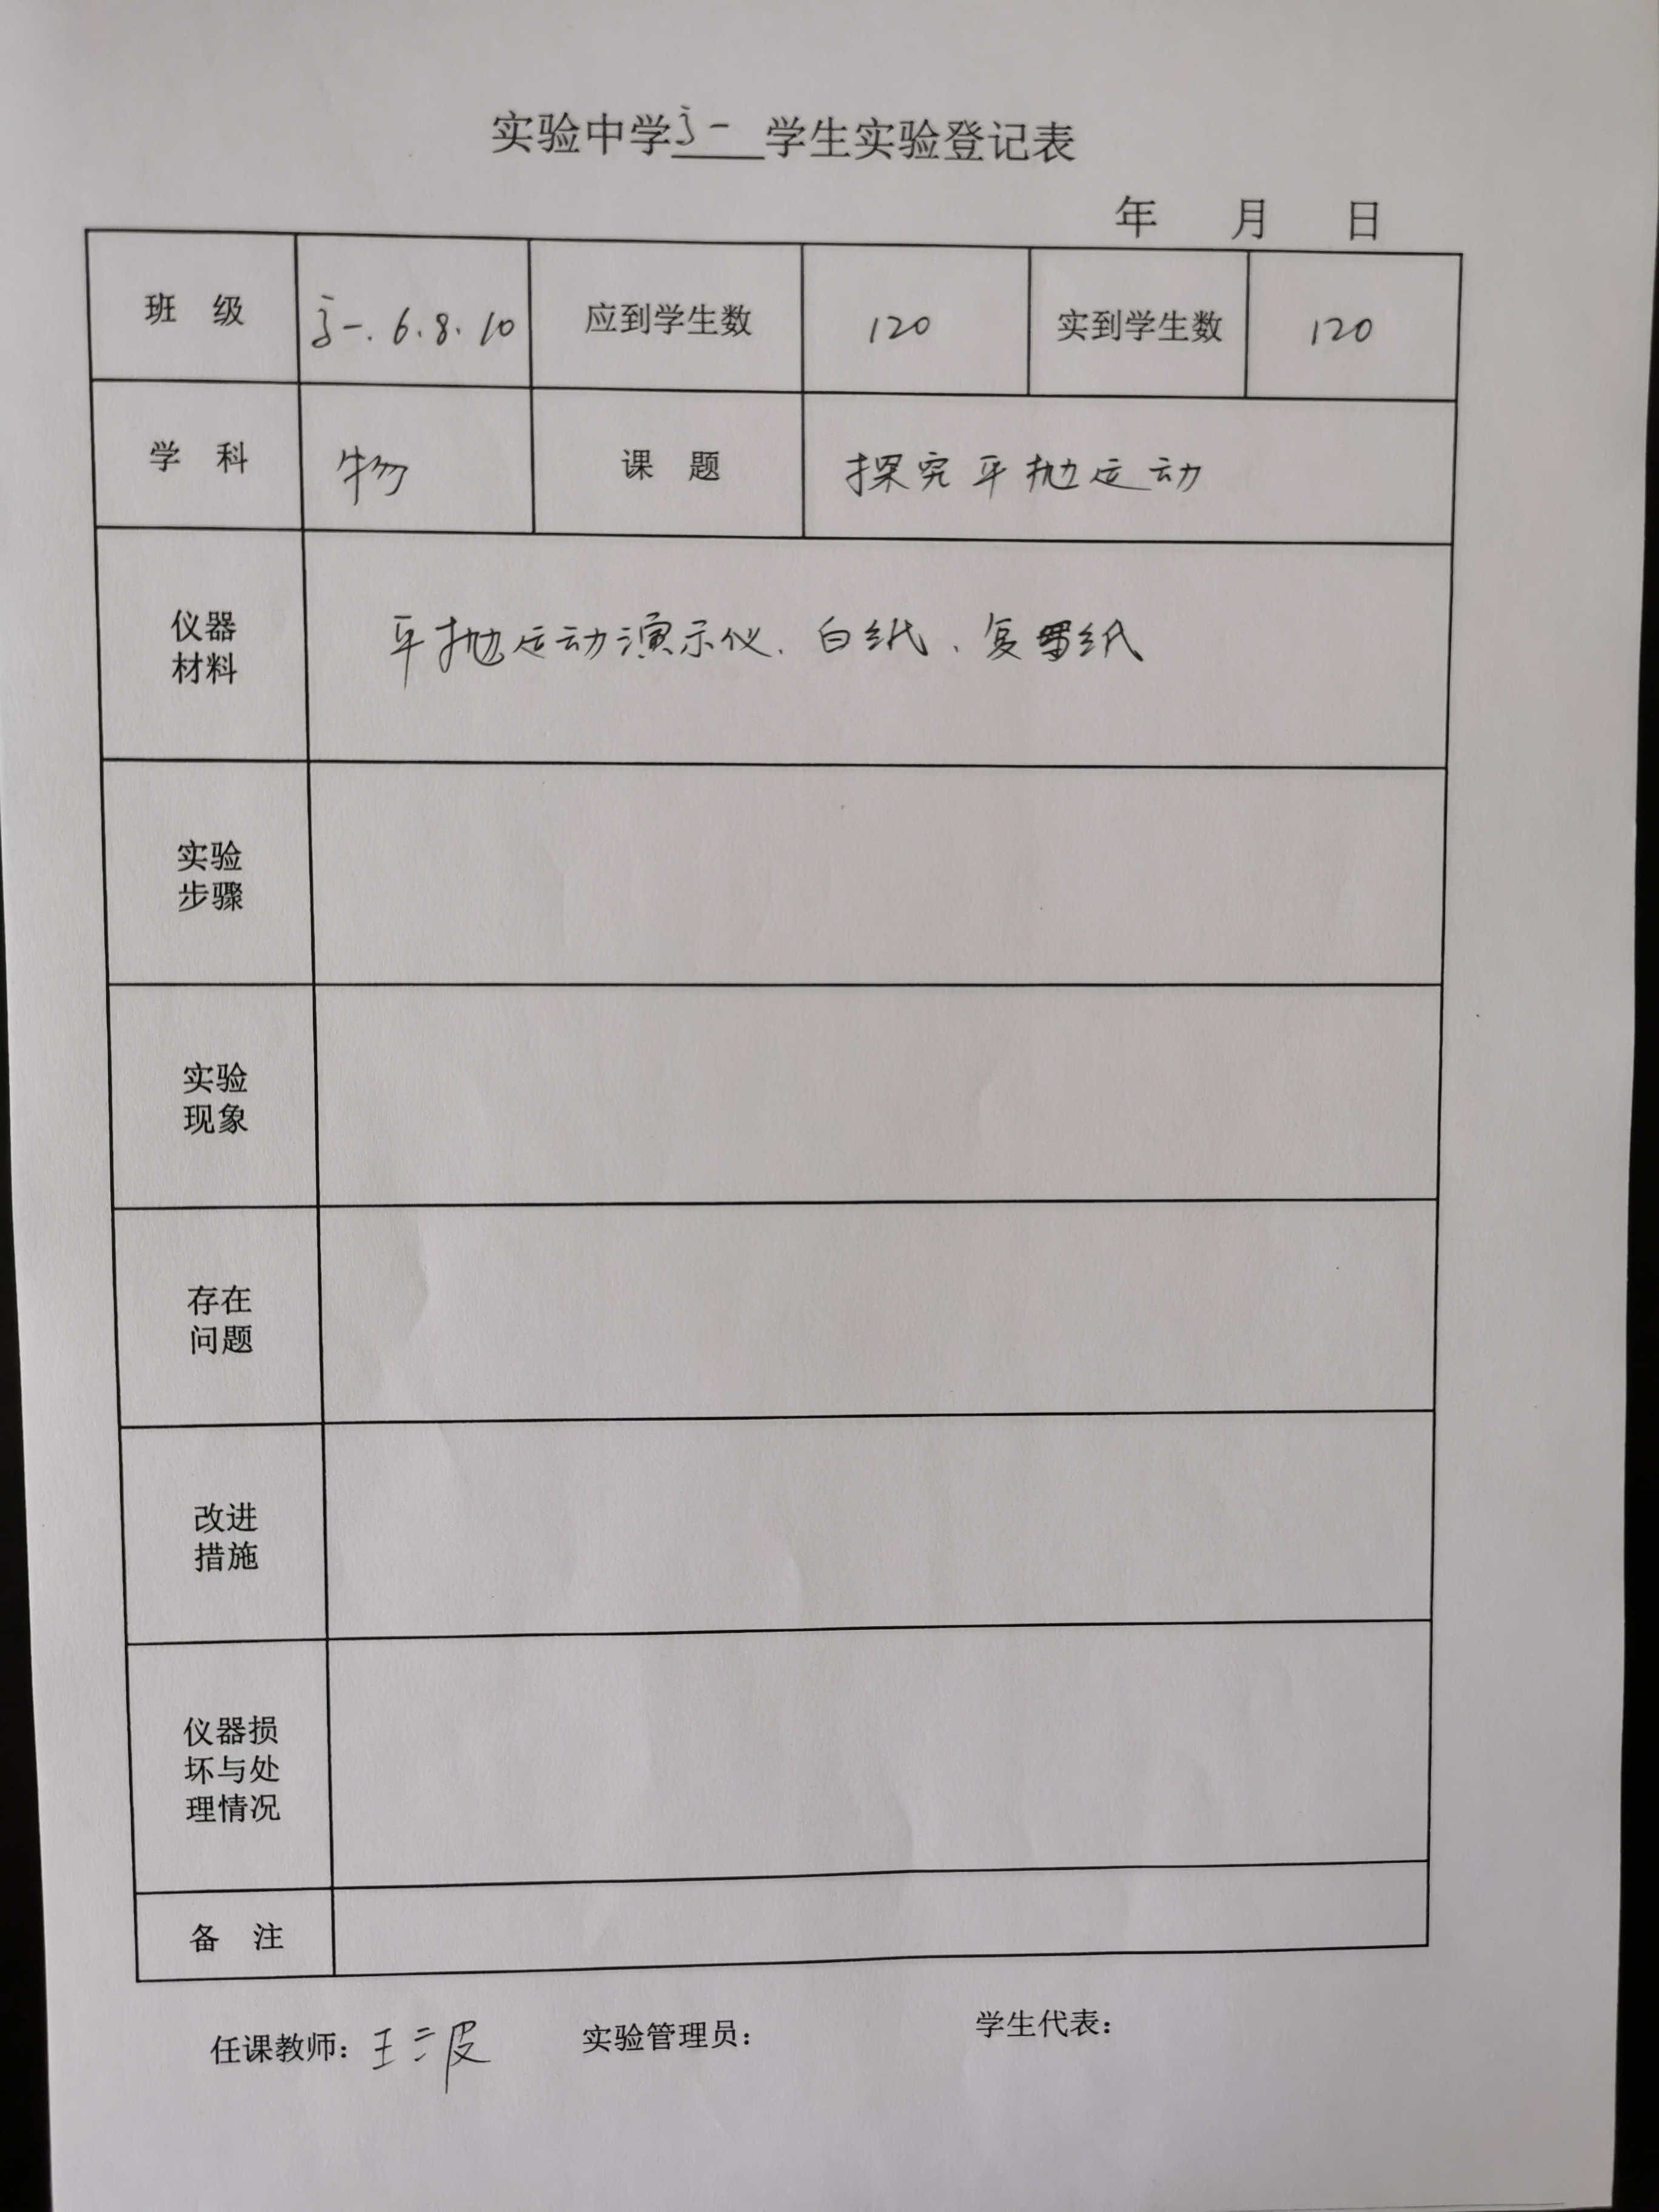 实验中学高一学生实验登记表
年 月 日
班 级 高一.6.8.10 应到学生数 120 实到学生数 120
学 科 物 课 题 探究平抛运动
仪器
材料
平抛运动演示仪、白纸、复写纸
实验
步骤
实验
现象
存在
问题
改进
措施
仪器损
坏与处
理情况
备 注
任课教师：王 实验管理员： 学生代表：